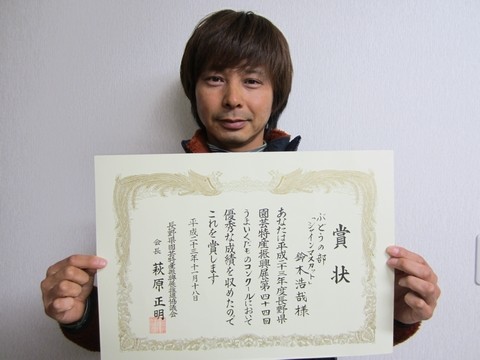 賞状
ぶどうの部
"シャインマスカット"
鈴木浩哉様
あなたは平成二十三年度長野県
園芸特産振興展第四十四回
うまいくだものコンクールにおいて
優秀な成績を収めたので
これを賞します
平成二十三年十一月十八日
長野県園芸特産振興展推進協議会
会長 萩原正明